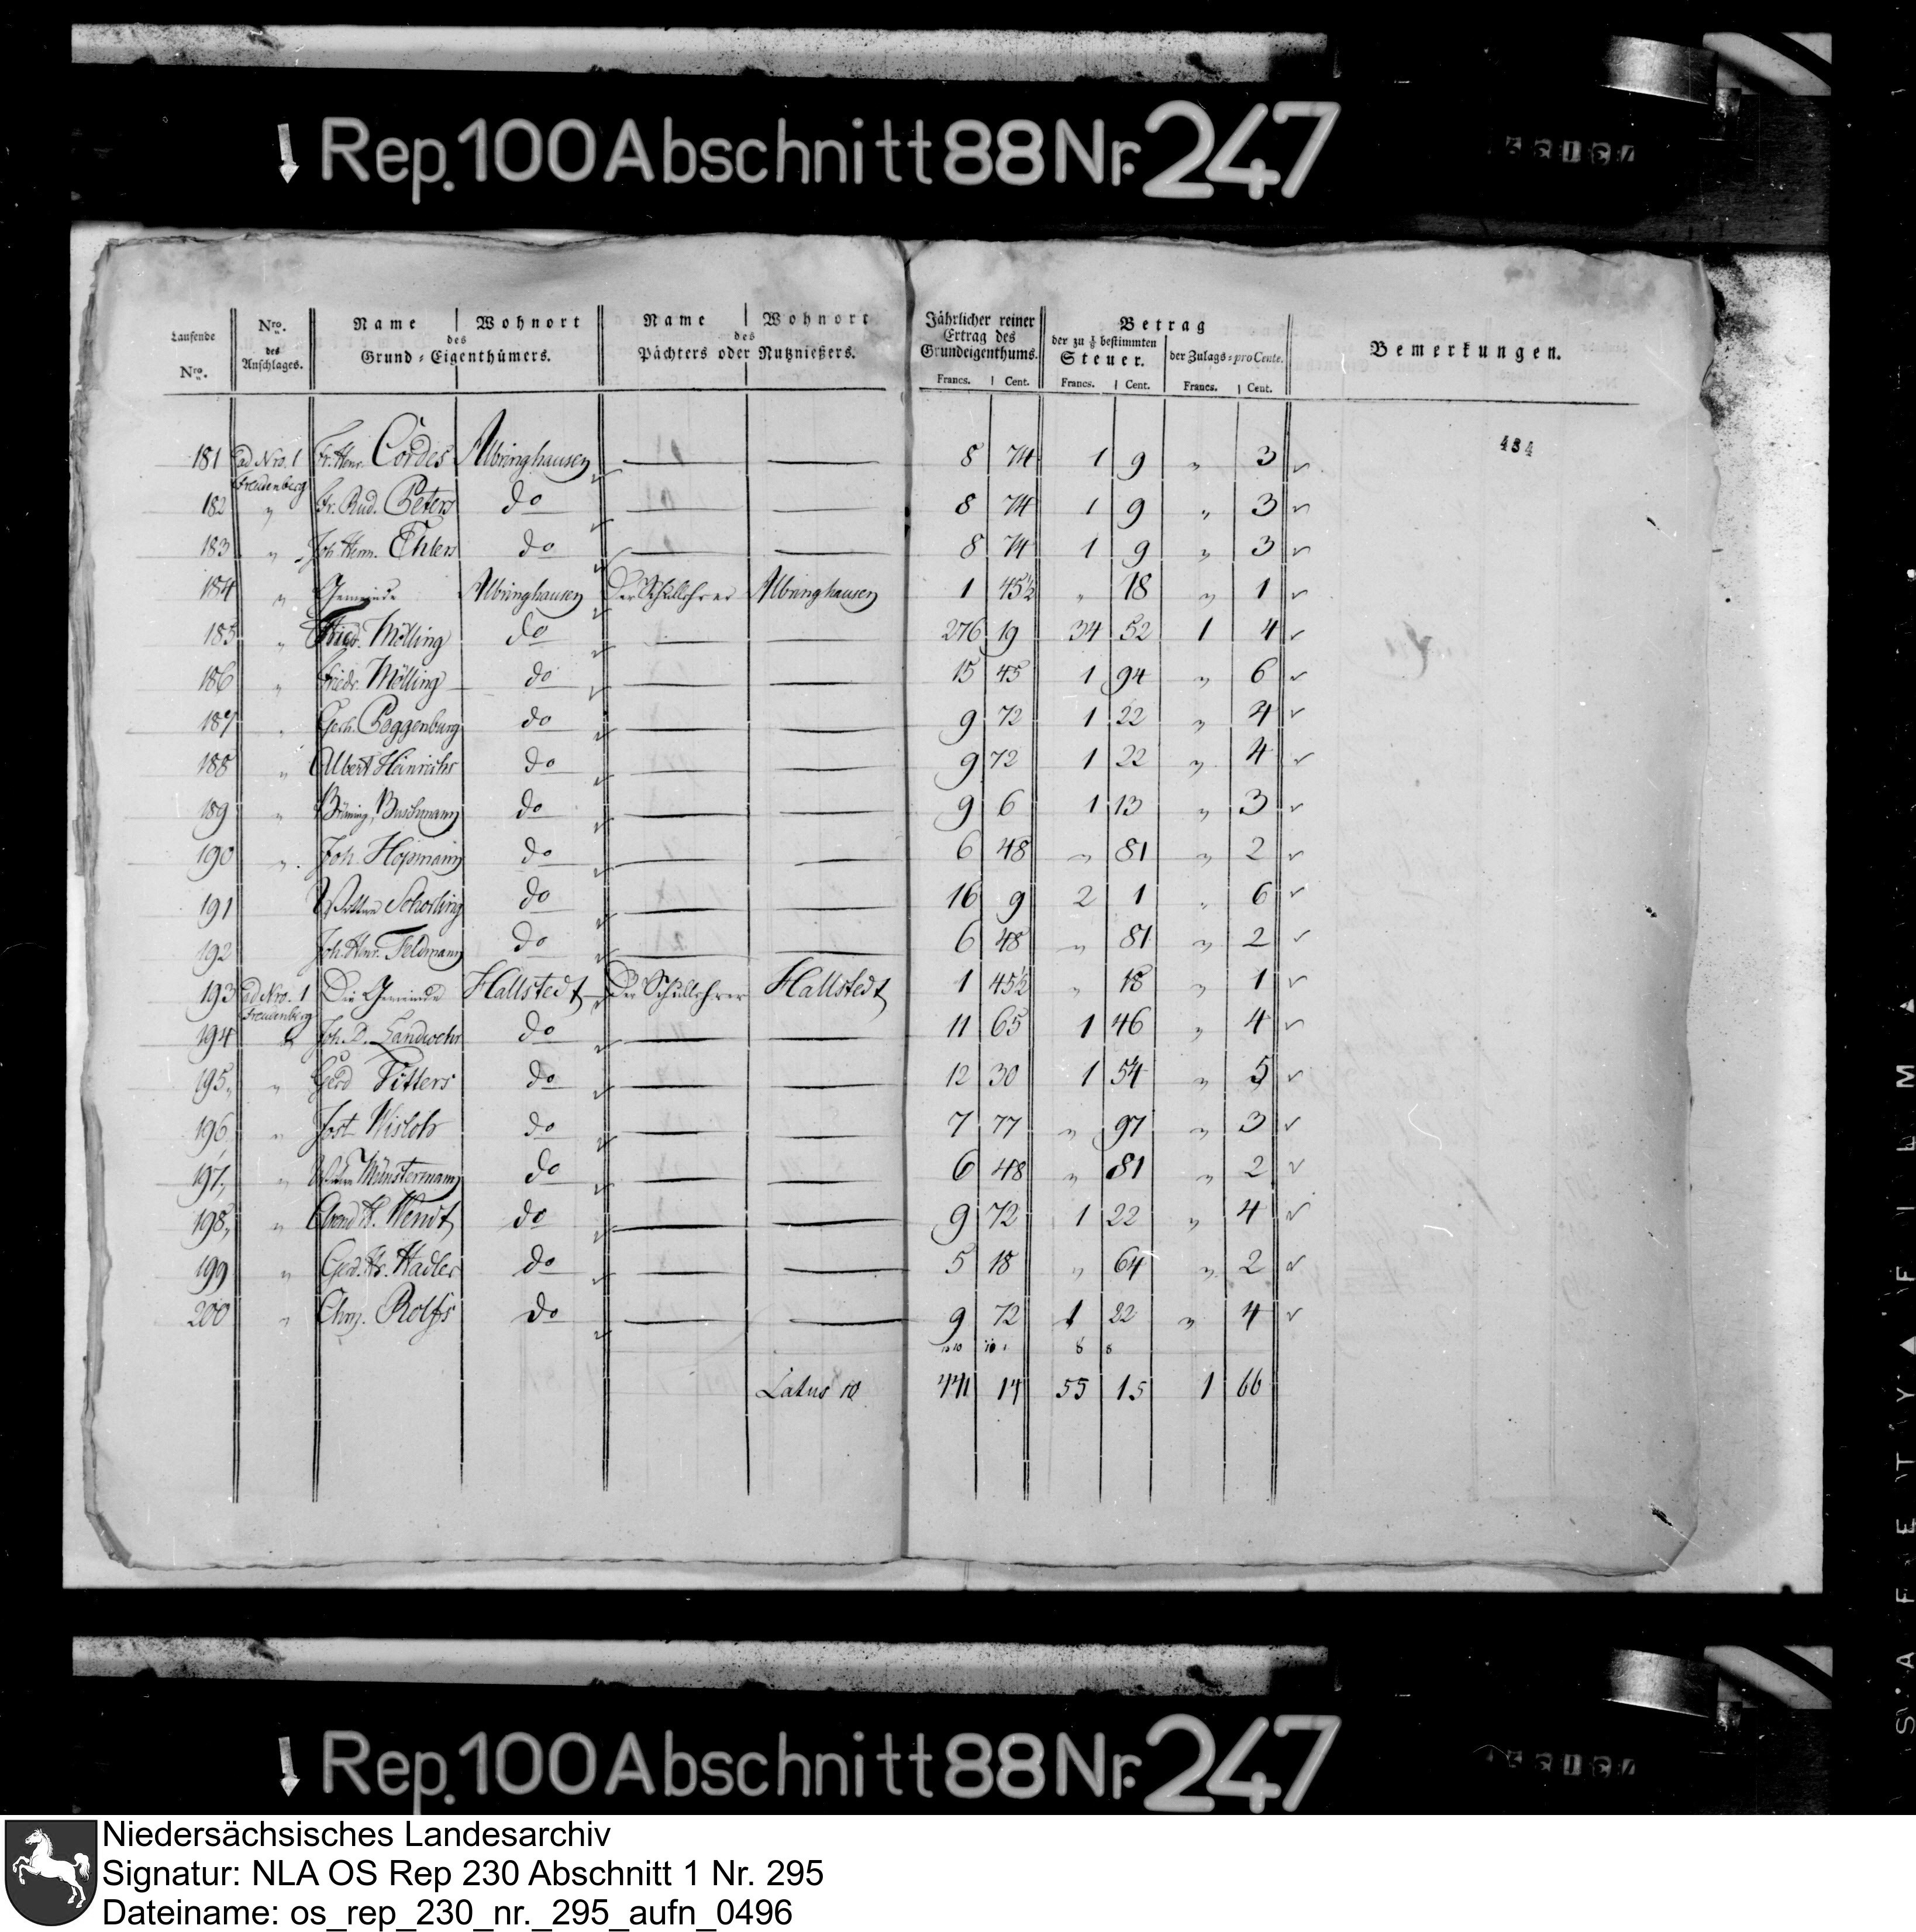 Rep. 100 Abschnitt 88 Nr. 247
Laufende Nro. | Nro. des Anschlages. | Name | Wohnort des Grund-Eigenthümers. | Name | Wohnort des Pächters oder Nutznießers. | Jährlicher reiner Ertrag des Grundeigenthums. Francs. Cent. | Betrag der zu ⅛ bestimmten Steuer. Francs. Cent. | der Zulags-pro Cente. Francs. Cent. | Bemerkungen.
434
181 ad Nro. 1 Freudenberg Fr. Henr. Cordes Albringhausen — — 8 74 1 9 " 3
182 " Fr. Rud. Peters do — — 8 74 1 9 " 3
183 " Joh. Herm. Ehlers do — — 8 74 1 9 " 3
184 " Gemeinde Albringhausen Der Schullehrer Albringhausen 1 45½ " 18 " 1
185 " Friedr. Mölling do — — 276 19 34 52 1 4
186 " Friedr. Mölling do — — 15 45 1 94 " 6
187 " Gerh. Poggenburg do — — 9 72 1 22 " 4
188 " Albert Heinrichs do — — 9 72 1 22 " 4
189 " Böning, Buschmann do — — 9 6 1 13 " 3
190 " Joh. Hopmann do — — 6 48 " 81 " 2
191 Wittwe Schorling do — — 16 9 2 1 " 6
192 Joh. Henr. Feldmann do — — 6 48 " 81 " 2
193 ad Nro. 1 Freudenberg Die Gemeinde Hallstedt Der Schullehrer Hallstedt 1 45½ " 18 " 1
194 " Joh. D. Landwehr do — — 11 65 1 46 " 4
195 " Gerd Vitters do — — 12 30 1 54 " 5
196 " Jost Wisloh do — — 7 77 " 97 " 3
197 " Wittwe Münstermann do — — 6 48 " 81 " 2
198 " Arend H. Wendt do — — 9 72 1 22 " 4
199 " Gerd. Hr. Hadler do — — 5 18 " 64 " 2
200 " Chrn. Rolfs do — — 9 72 1 22 " 4
Latus 10 441 14 55 15 1 66
Rep. 100 Abschnitt 88 Nr. 247
Niedersächsisches Landesarchiv
Signatur: NLA OS Rep 230 Abschnitt 1 Nr. 295
Dateiname: os_rep_230_nr._295_aufn_0496